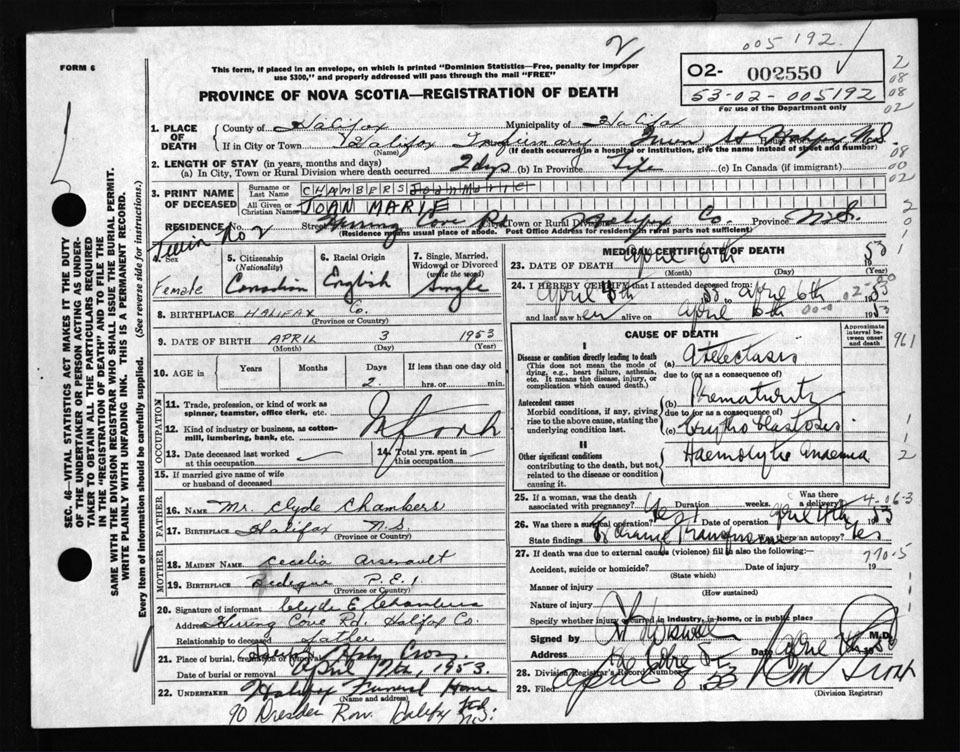 005192
2
FORM 6
This form, if placed in an envelope, on which is printed "Dominion Statistics—Free, penalty for improper
use $300," and properly addressed will pass through the mail "FREE"
O2- 002550
53-02-005192
For use of the Department only
PROVINCE OF NOVA SCOTIA—REGISTRATION OF DEATH
1. PLACE OF DEATH
County of Halifax Municipality of Halifax
If in City or Town Halifax Infirmary St Halifax N.S.
(Name) (If death occurred in a hospital or institution, give the name instead of street and number)
2. LENGTH OF STAY (in years, months and days)
(a) In City, Town or Rural Division where death occurred 2 dys (b) In Province Life (c) In Canada (if immigrant)
3. PRINT NAME OF DECEASED
Surname or Last Name CHAMBERS
All Given or Christian Names JOAN MARIE
RESIDENCE No. Street Herring Cove Rd City, Town or Rural Division Halifax Co. Province N.S.
(Residence means usual place of abode. Post Office Address for residents of rural parts not sufficient)
Twin No 2
4. Sex Female
5. Citizenship (Nationality) Canadian
6. Racial Origin English
7. Single, Married, Widowed or Divorced (write the word) Single
8. BIRTHPLACE HALIFAX Co.
(Province or Country)
9. DATE OF BIRTH APRIL 3 1953
(Month) (Day) (Year)
10. AGE in Years Months Days 2 If less than one day old hrs. or min.
OCCUPATION
11. Trade, profession, or kind of work as
spinner, teamster, office clerk, etc.
12. Kind of industry or business, as cotton-
mill, lumbering, bank, etc.
13. Date deceased last worked at this occupation
14. Total yrs. spent in this occupation
15. If married give name of wife
or husband of deceased
FATHER
16. NAME Mr. Clyde Chambers
17. BIRTHPLACE Halifax N.S.
(Province or Country)
MOTHER
18. MAIDEN NAME Cecelia Arsenault
19. BIRTHPLACE Bedeque P.E.I.
(Province or Country)
20. Signature of informant Clyde E. Chambers
Address Herring Cove Rd, Halifax Co.
Relationship to deceased father
21. Place of burial, cremation or removal Holy Cross
Date of burial or removal April 7th, 1953.
22. UNDERTAKER Halifax Funeral Home
(Name and address)
90 Dresden Row. Halifax N.S.
MEDICAL CERTIFICATE OF DEATH
23. DATE OF DEATH April 19 53
(Month) (Day)
24. I HEREBY CERTIFY that I attended deceased from
April 53 to April 6th 1953
and last saw her alive on April 19
CAUSE OF DEATH
Approximate interval between onset and death
I
Disease or condition directly leading to death
(This does not mean the mode of
dying, e.g., heart failure, asthenia,
etc. It means the disease, injury, or
complication which caused death.)
(a) Atelectasis
due to (or as a consequence of)
Antecedent causes
Morbid conditions, if any, giving
rise to the above cause, stating the
underlying condition last.
(b) Prematurity
due to (or as a consequence of)
(c) Erythroblastosis
II
Other significant conditions
contributing to the death, but not
related to the disease or condition
causing it.
Haemolytic Anaemia
25. If a woman, was the death associated with pregnancy? Duration weeks. Was there a delivery?
26. Was there a surgical operation? Yes Date of operation April 4th 1953
State findings Exchange Transfusion Was there an autopsy? Yes
27. If death was due to external causes (violence) fill in also the following:
Accident, suicide or homicide? Date of injury 19
(State which)
Manner of injury
(How sustained)
Nature of injury
Specify whether injury occurred in industry, in home, or in public place
Signed by M.D.
Address Date April 19
28. Division Registrar's Record Number
29. Filed April 8 53
(Division Registrar)
SEC. 46—VITAL STATISTICS ACT MAKES IT THE DUTY
OF THE UNDERTAKER OR PERSON ACTING AS UNDER-
TAKER TO OBTAIN ALL THE PARTICULARS REQUIRED
IN THE "REGISTRATION OF DEATH" AND TO FILE THE
SAME WITH THE DIVISION REGISTRAR WHO SHALL ISSUE THE BURIAL PERMIT.
WRITE PLAINLY WITH UNFADING INK. THIS IS A PERMANENT RECORD.
Every item of information should be carefully supplied. (See reverse side for instructions.)
2
08
08
02
08
00
02
961
770-5